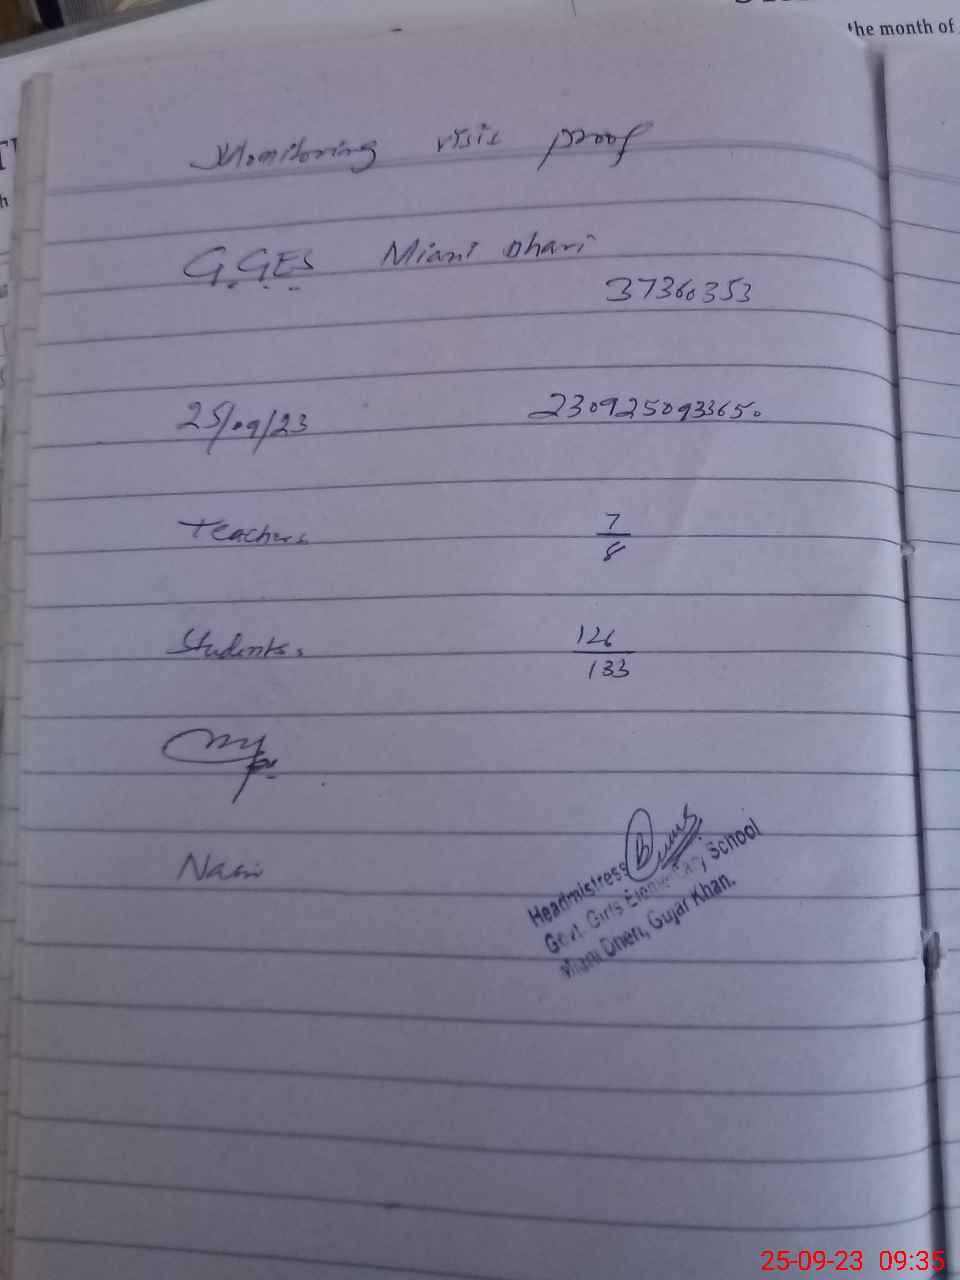 the month of
Monitoring visit proof
G.GES Miani Dhari
37360353
25/09/23 230925093365.
Teachers 7/8
Students. 126/133
Headmistress
Govt. Girls Elementary School
Miani Dheri, Gujar Khan.
25-09-23 09:35